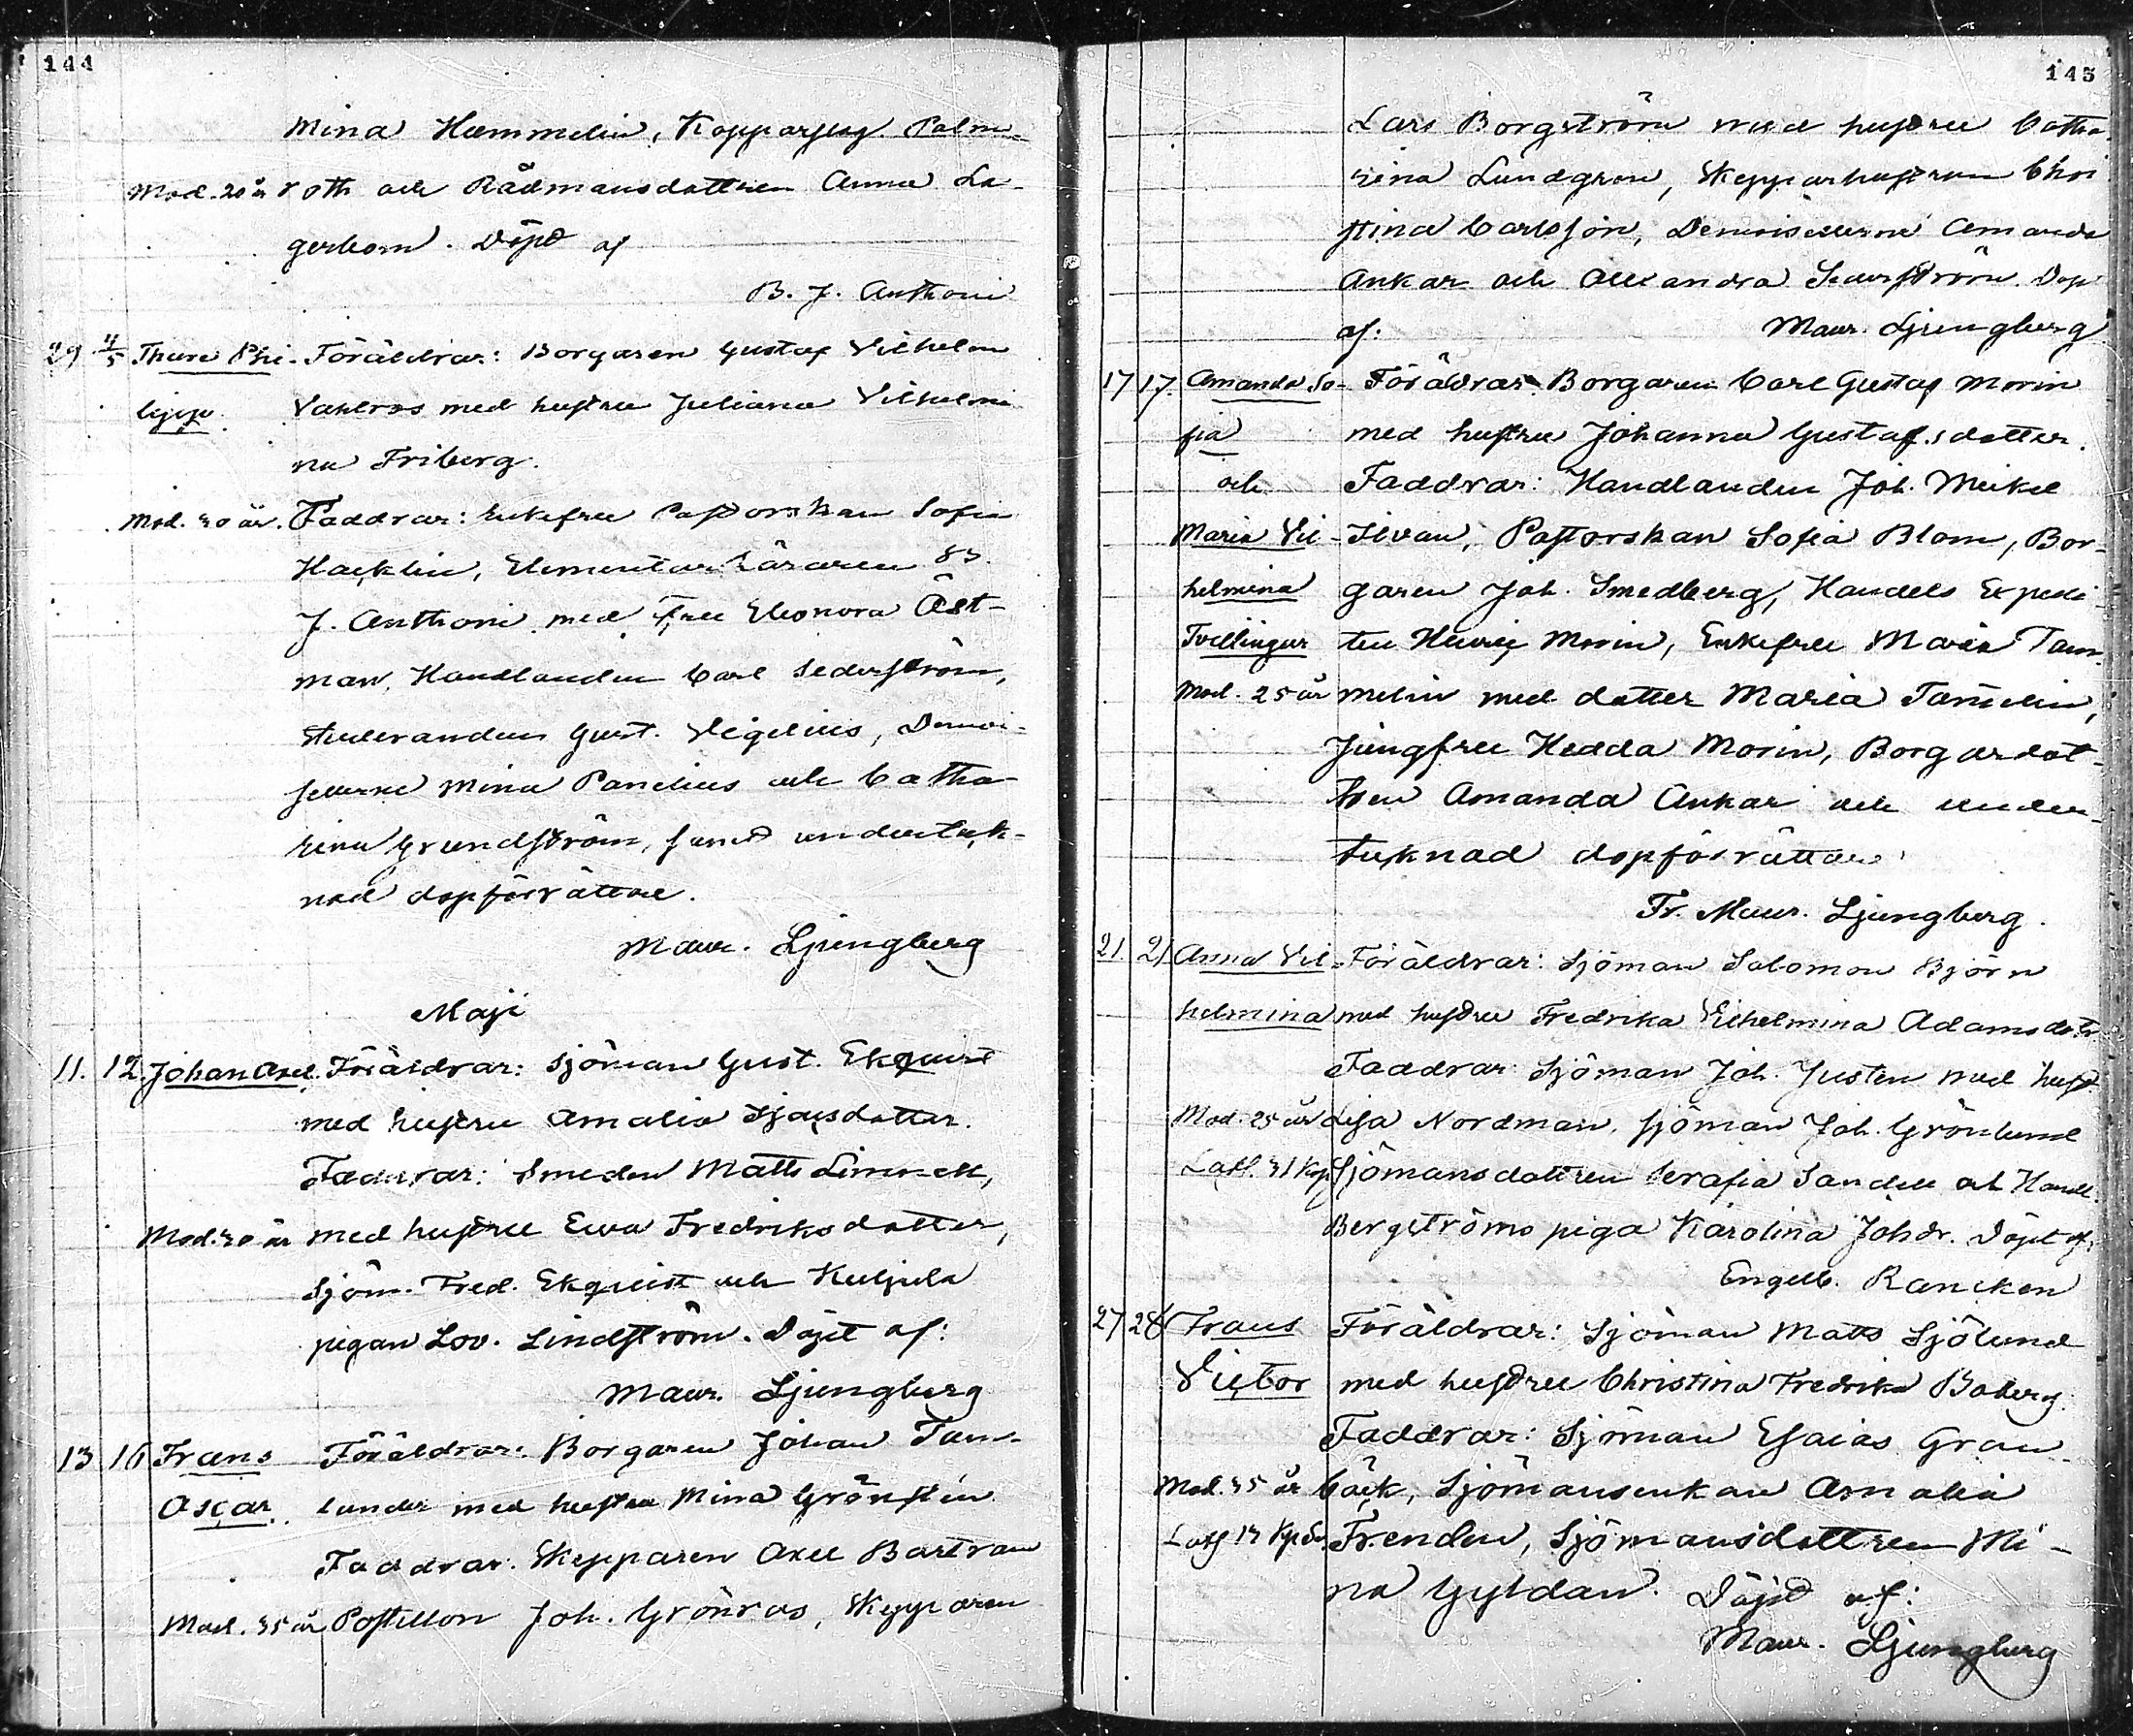 144
Mina Hammelin, Kopparslag. Palm-
Mod. 20 år roth och Rådmansdottren Anna La-
gerbom. Döpt af
B. J. Anthoni
29 4/5 Thure Phi- Föräldrar: Borgaren Gustaf Vilhelm
lipp. Vahlros med hustru Juliana Vilhelmi
na Friberg.
Mod. 30 år. Faddrar: Enkefru Pastorskan Sofia
Hacklin, Elementar Läraren
J. Anthoni med Fru Eleonora Åst-
man, Handlanden Carl Sederström,
Studeranden Gust. Vigelius, Demoi-
sellerne Mina Panelius och Catha-
rina Grundström, samt underteck-
nad dopförrättare.
Maur. Ljungberg
Maji
11. 12. Johan Axel. Föräldrar: Sjöman Gust. Ekquist
med hustru Amalia Sjösdotter.
Faddrar: Smeden Matts
Mod. 30 år med hustru Eva Fredriksdotter,
Sjöm. Fred. Ekquist och Kuljula
pigan Lov. Lindström. Döpt af:
Maur. Ljungberg
13 16 Frans Föräldrar: Borgaren Johan Tam-
Oscar. lander med hustru Mina Grönstén
Faddrar: Skepparen Axel Bartram
Mod. 35 år Postillon Joh. Grönros, Skepparen
145
Lars Borgström med hustru Catha
rina Lundgren, Skepparhustrun Chri
stina Carlsson, Demoisellerne Amanda
Ankar och Alexandra Sederström. Döpt
af: Maur. Ljungberg
17 17. Amanda So- Föräldrar: Borgaren Carl Gustaf Morin
fia med hustru Johanna Gustafsdotter.
och Faddrar: Handlanden Joh. Mikel
Maria Vil- Ilvan, Pastorskan Sofia Blom, Bor-
helmina garen Joh. Smedberg, Handels Expedi-
Tvillingar ten Henric Morin, Enkefru Maria Tam-
Mod. 25 år melin med dotter Maria Tam̄elin,
Jungfru Hedda Morin, Borgardot-
tren Amanda Ankar och under-
tecknad dopförrättare
Fr. Maur. Ljungberg.
21. 21 Anna Vil- Föräldrar: Sjöman Salomon Björn
helmina med hustru Fredrika Vilhelmina Adamsdotr
Faddrar: Sjöman Joh. Justen med hust.
Mod. 25 år Lisa Nordman, sjöman Joh. Grönlund
Latt. 31 Kop Sjömansdottren Serafia Sandell och Handl.
Bergströms piga Karolina Johdr. Döpt af:
Engelb. Rancken
27 28 Frans Föräldrar: Sjöman Matts Sjölund
Victor med hustru Christina Fredrika Boberg.
Faddrar: Sjöman Esaias Gran-
Mod. 35 år bäck, Sjömansenkan Amalia
Latt 17 Kop Sr. Frenden, Sjömansdottren Mi-
na Gyldan. Döpt af:
Maur. Ljungberg